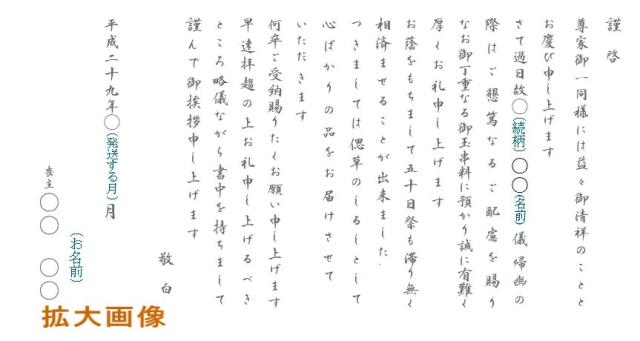 謹啓
尊家御一同様には益々御清祥のことと
お慶び申し上げます
さて過日故〇(続柄)〇〇(名前)儀帰幽の
際はご懇篤なるご配慮を賜り
なお御丁重なる御玉串料に預かり誠に有難く
厚くお礼申し上げます
お蔭をもちまして五十日祭も滞り無く
相済ませることが出来ました
つきましては偲草のしるしとして
心ばかりの品をお届けさせて
いただきます
何卒ご受納賜りたくお願い申し上げます
早速拝趨の上お礼申し上げるべき
ところ略儀ながら書中を持ちまして
謹んで御挨拶申し上げます
敬白
平成二十九年〇(発送する月)月
(お名前)
喪主〇〇 〇〇
拡大画像